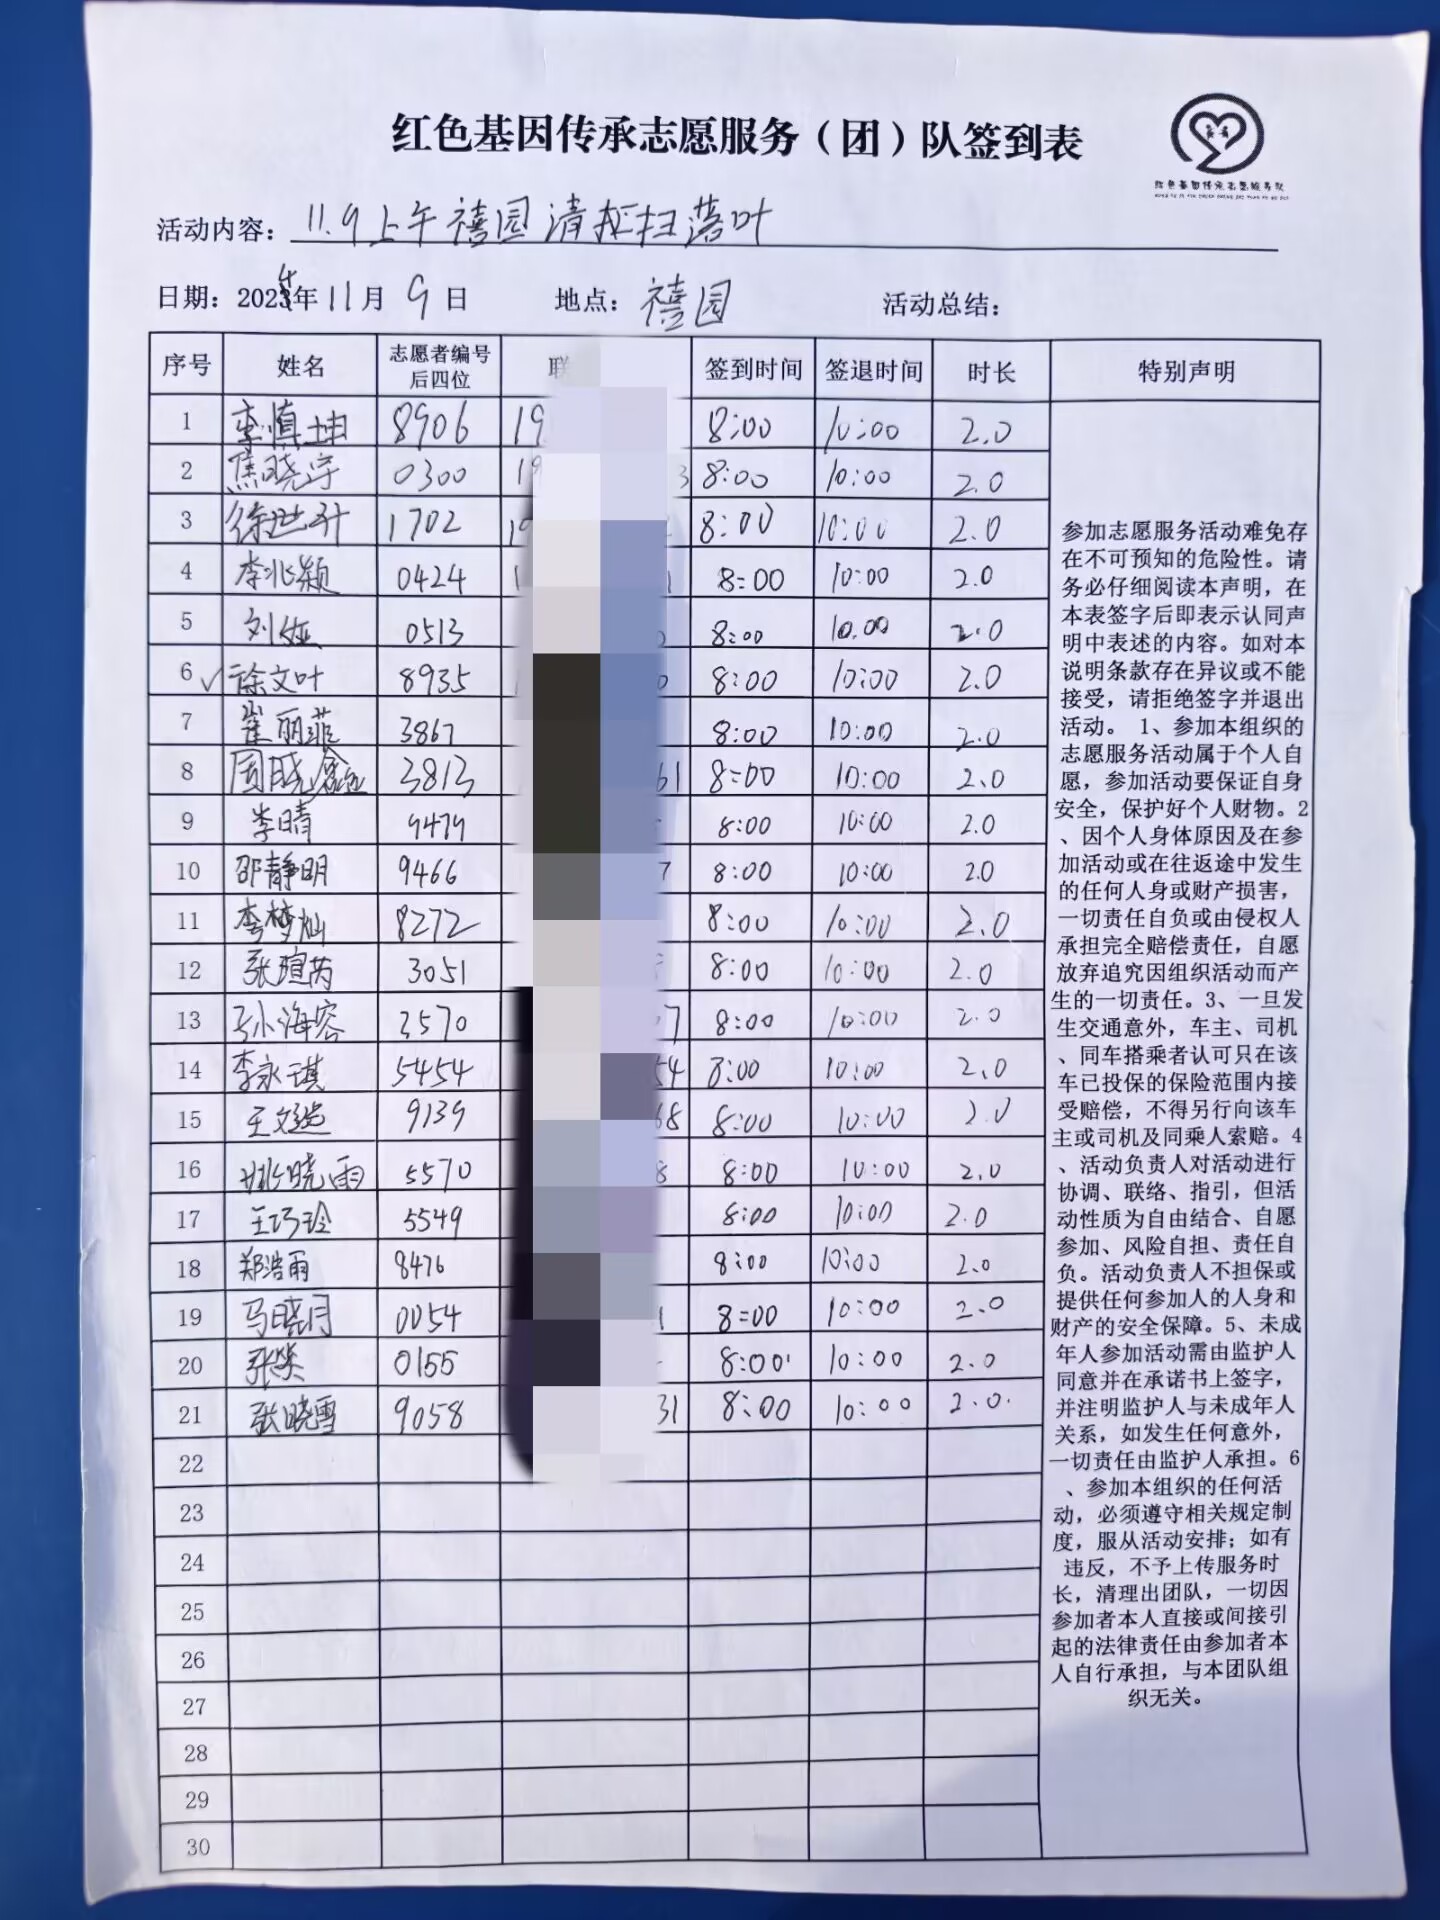 红色基因传承志愿服务（团）队签到表
红色基因传承志愿服务队
活动内容：11.9上午禧园清扫落叶
日期：2024年11月9日 地点：禧园 活动总结：
序号 姓名 志愿者编号后四位 联 签到时间 签退时间 时长 特别声明
1 李慎坤 8906 19 8:00 10:00 2.0
2 焦晓宇 0300 19 3 8:00 10:00 2.0
3 徐世升 1702 19 8:00 10:00 2.0
4 李兆颖 0424 1 1 8:00 10:00 2.0
5 刘 0513 8:00 10:00 2.0
6 ✓徐文叶 8935 0 8:00 10:00 2.0
7 崔丽菲 3867 8:00 10:00 2.0
8 周晓鑫 3813 61 8:00 10:00 2.0
9 李晴 9479 8:00 10:00 2.0
10 邵静明 9466 7 8:00 10:00 2.0
11 李梦灿 8272 8:00 10:00 2.0
12 张瑄芮 3051 8:00 10:00 2.0
13 孙海容 3570 07 8:00 10:00 2.0
14 李永琪 5454 54 8:00 10:00 2.0
15 王文 9139 68 8:00 10:00 2.0
16 姚晓雨 5570 8 8:00 10:00 2.0
17 王巧玲 5549 8:00 10:00 2.0
18 郑浩雨 8476 8:00 10:00 2.0
19 马晓月 0054 1 8:00 10:00 2.0
20 张 0155 8:00 10:00 2.0
21 张晓雪 9058 31 8:00 10:00 2.0
22
23
24
25
26
27
28
29
30
参加志愿服务活动难免存
在不可预知的危险性。请
务必仔细阅读本声明，在
本表签字后即表示认同声
明中表述的内容。如对本
说明条款存在异议或不能
接受，请拒绝签字并退出
活动。 1、参加本组织的
志愿服务活动属于个人自
愿，参加活动要保证自身
安全，保护好个人财物。2
、因个人身体原因及在参
加活动或在往返途中发生
的任何人身或财产损害，
一切责任自负或由侵权人
承担完全赔偿责任，自愿
放弃追究因组织活动而产
生的一切责任。3、一旦发
生交通意外，车主、司机
、同车搭乘者认可只在该
车已投保的保险范围内接
受赔偿，不得另行向该车
主或司机及同乘人索赔。4
、活动负责人对活动进行
协调、联络、指引，但活
动性质为自由结合、自愿
参加、风险自担、责任自
负。活动负责人不担保或
提供任何参加人的人身和
财产的安全保障。5、未成
年人参加活动需由监护人
同意并在承诺书上签字，
并注明监护人与未成年人
关系，如发生任何意外，
一切责任由监护人承担。6
、参加本组织的任何活
动，必须遵守相关规定制
度，服从活动安排；如有
违反，不予上传服务时
长，清理出团队，一切因
参加者本人直接或间接引
起的法律责任由参加者本
人自行承担，与本团队组
织无关。